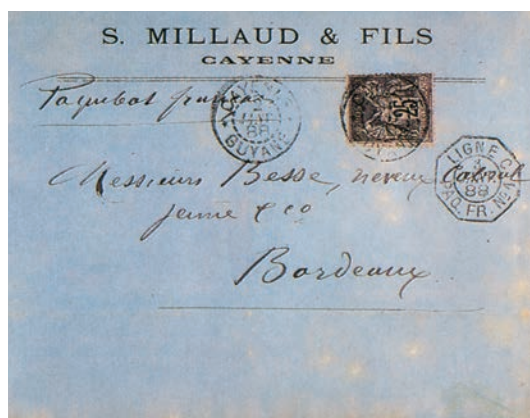 S. MILLAUD & FILS
CAYENNE
Paquebot français
CAYENNE
3
JANV
88
GUYANE
25
LIGNE C
3
88
PAQ. FR. No
Messieurs Besse, neveux Cabrol
jeune & co
Bordeaux